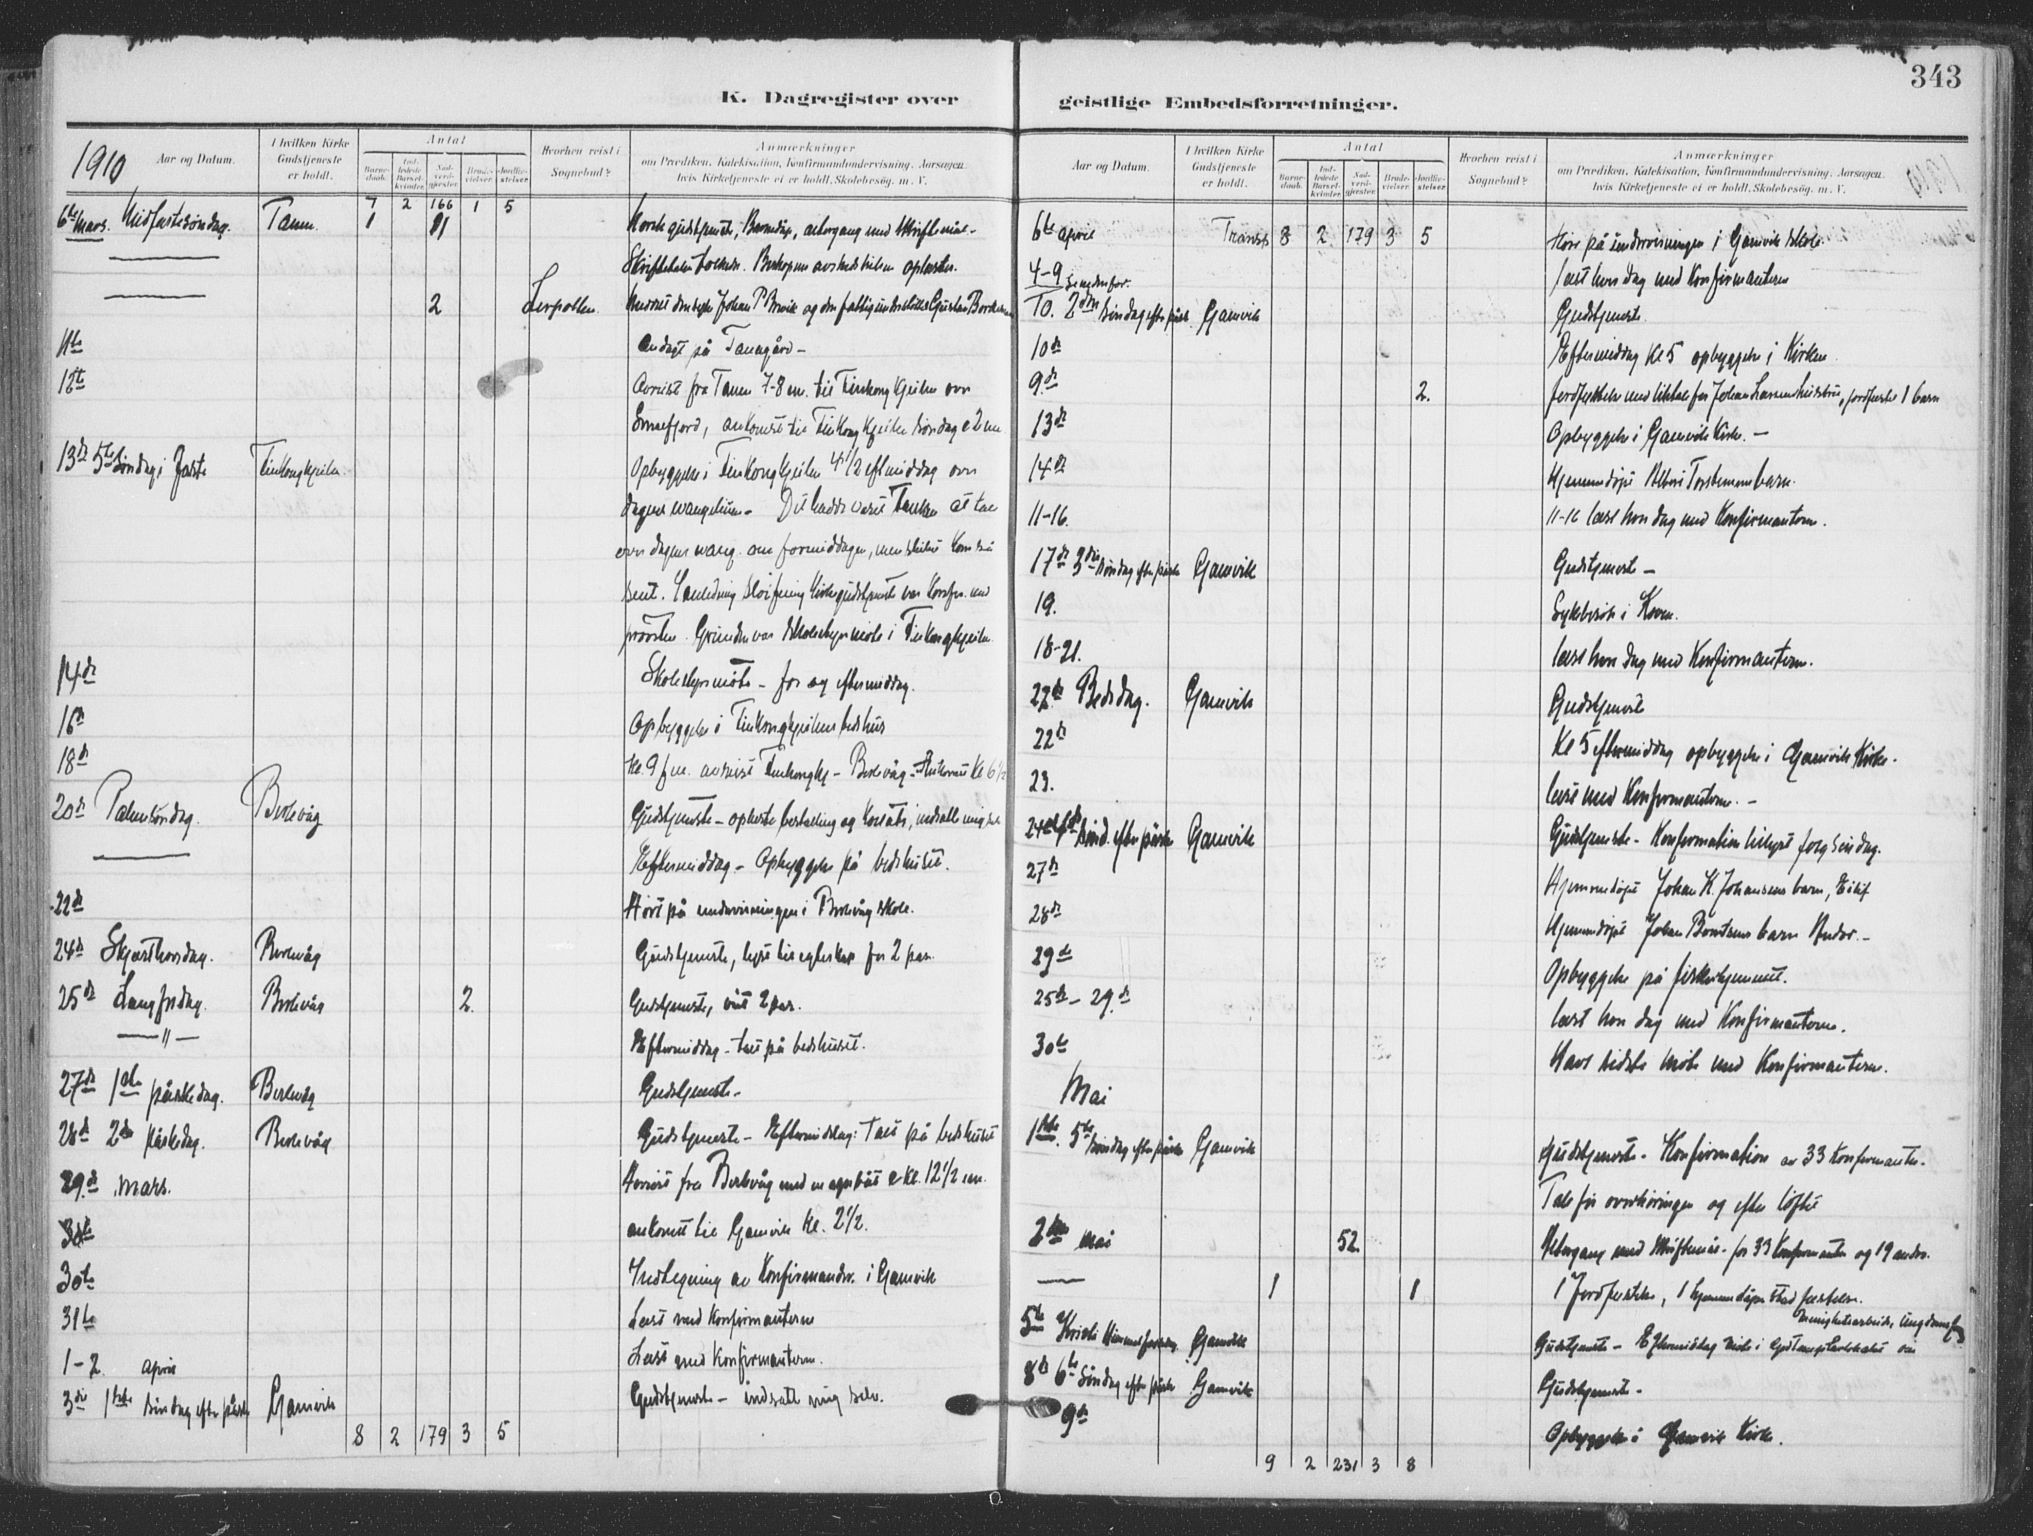 343
K. Dagregister over
geistlige Embedsforretninger.
1910
Aar og Datum.
I hvilken Kirke Gudstjeneste er holdt.
Antal
Barnedaab.
Indledede Barselkvinder.
Nadverdgjester.
Brudevielser.
Jordfæstelser.
Hvorhen reist i Sognebud?
Anmærkninger
om Prædiken, Katekisation, Konfirmandundervisning. Aarsagen
hvis Kirketjeneste ei er holdt. Skolebesøg. m. V.
7 2 166 1 5
6te Mars. Midfastesøndag. Tanen. 1 11 Norsk gudstjeneste, Barnedåp, altergang med skriftemål.
Skriftetalen tolkedes. Biskopens avskedshilsen oplæstes.
2 Leirpollen.
11te Andagt på Tanagård –
12te Avreist fra Tanen 7-8 em. til Finkongkjeilen over
ankomst til Finkongkjeilen søndag 2 em
13de 5te Søndag i Faste Finkongkjeilen Opbyggelse i Finkongkjeilen 4 1/2 eftmiddag over
dagens evangelium – Det hadde været Tanken at tale
over dagens evang. om formiddagen, men
sent.
provsten. Grunden var Skolestyremøte i Finkongkjeilen
14de Skolestyremøte – for og eftermiddag.
16de Opbyggelse i Finkongkjeilens bedehus
18de Kl. 9 fm. avreist Finkongkj – Berlevåg – Ankomst Kl 6 1/2
20de Palmesøndag. Berlevåg Gudstjeneste – oplæste bestalling og Kollats, indsatte mig selv
Eftermiddag – Opbyggelse på bedehuset.
22de Hørt på undervisningen i Berlevåg skole.
24de Skjærthorsdag. Berlevåg Gudstjeneste, lyst til egteskap for 2 par.
25de Langfredag. Berlevåg 2. Gudstjeneste, viet 2 par.
— " — Eftermiddag – tale på bedehuset.
27de 1ste påskedag. Berlevåg Gudstjeneste –
28de 2den Påskedag. Berlevåg Gudstjeneste – Eftermiddag: Tale på bedehuset
29de Mars. Avreist fra Berlevåg med Kl. 12 1/2 em.
ankomst til Gamvik Kl. 2 1/2.
30te Indtegning av Konfirmander i Gamvik
31te Læst med Konfirmanterne
1-2. april Læst med Konfirmanterne.
3die 1ste Søndag efter påske Gamvik Gudstjeneste – indsatte mig selv.
8 2 179 3 5
Aar og Datum.
I hvilken Kirke Gudstjeneste er holdt.
Antal
Barnedaab.
Indledede Barselkvinder.
Nadverdgjester.
Brudevielser.
Jordfæstelser.
Hvorhen reist i Sognebud?
Anmærkninger
om Prædiken, Katekisation, Konfirmandundervisning. Aarsagen
hvis Kirketjeneste ei er holdt. Skolebesøg. m. V.
6te april Transp 8 2 179 3 5 Hørt på undervisningen i Gamvik skole.
4-9 læst hver dag med Konfirmanterne
10. 2den Søndag efter påske Gamvik Gudstjeneste.
10de Eftermiddag Kl 5 opbyggelse i Kirken.
9de 2. Jordfæstelse med liktale for Johan jordfæstet 1 barn
13de Opbyggelse i Gamvik Kirke. –
14de Hjemmedøpt Torstensens barn.
11-16. 11-16 læst hver dag med Konfirmanterne.
17de 3die Søndag efter påske Gamvik Gudstjeneste –
19. Sykebesøk i Koven.
18-21. læst hver dag med Konfirmanterne.
22de Bededag. Gamvik Gudstjeneste
22de Kl 5 eftermiddag opbyggelse i Gamvik Kirke.
23. læst med Konfirmanterne. –
24de 4de Sønd. efter påske Gamvik Gudstjeneste – Konfirmation tillyst følg. søndag.
27de Hjemmedøpt Johan K. Johansens barn, Eilif
28de Hjemmedøpt Johan Berntsens barn Andor. –
29de Opbyggelse på fiskerhjemmet.
25de – 29de læst hver dag med Konfirmanterne.
30te Havt sidste møte med Konfirmanterne.
Mai
1ste. 5te Søndag efter påske Gamvik Gudstjeneste – Konfirmation av 33 Konfirmanter.
Tale før overhøringen og efter løftet
2den mai 52. Altergang med skriftemål – for 33 Konfirmanter og 19 andre.
— 1 1 1 Jordfæstelse, 1 hjemmedåps stadfæstelse.
Menighetsarbeide, Ungdomsf
5te Kristi Himmelfartsdag Gamvik Gudstjeneste – Eftermiddag møte i Godtemplarlokalet om
8de 6te Søndag efter påske Gamvik Gudstjeneste –
9de Opbyggelse i Gamvik Kirke.
9 2 231 3 8